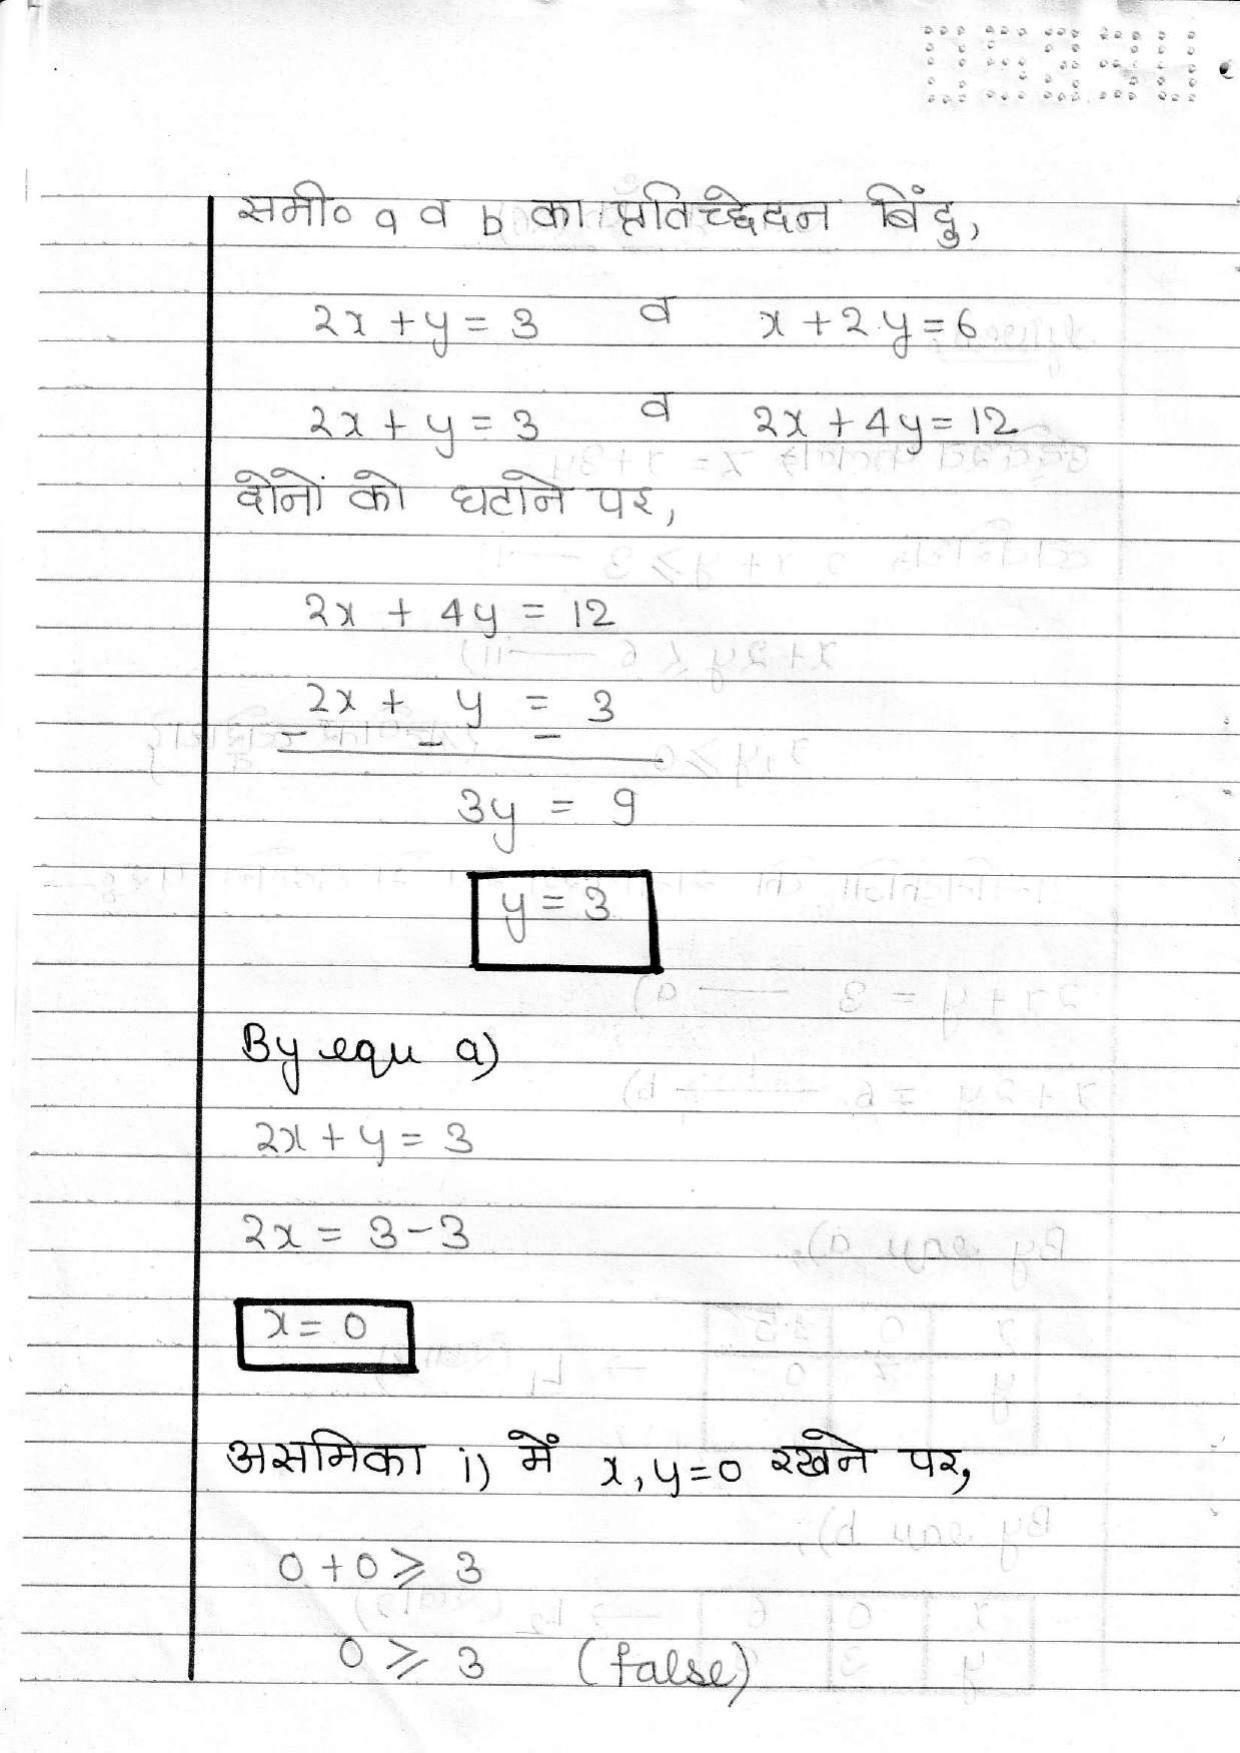 समी० a व b का प्रतिच्छेदन बिंदु,
2x + y = 3 व x + 2y = 6
2x + y = 3 व 2x + 4y = 12
दोनों को घटाने पर,
2x + 4y = 12
2x + y = 3
- - -
3y = 9
y = 3
By equ a)
2x + y = 3
2x = 3 - 3
x = 0
असमिका i) में x, y = 0 रखने पर,
0 + 0 ⩾ 3
0 ⩾ 3 (false)